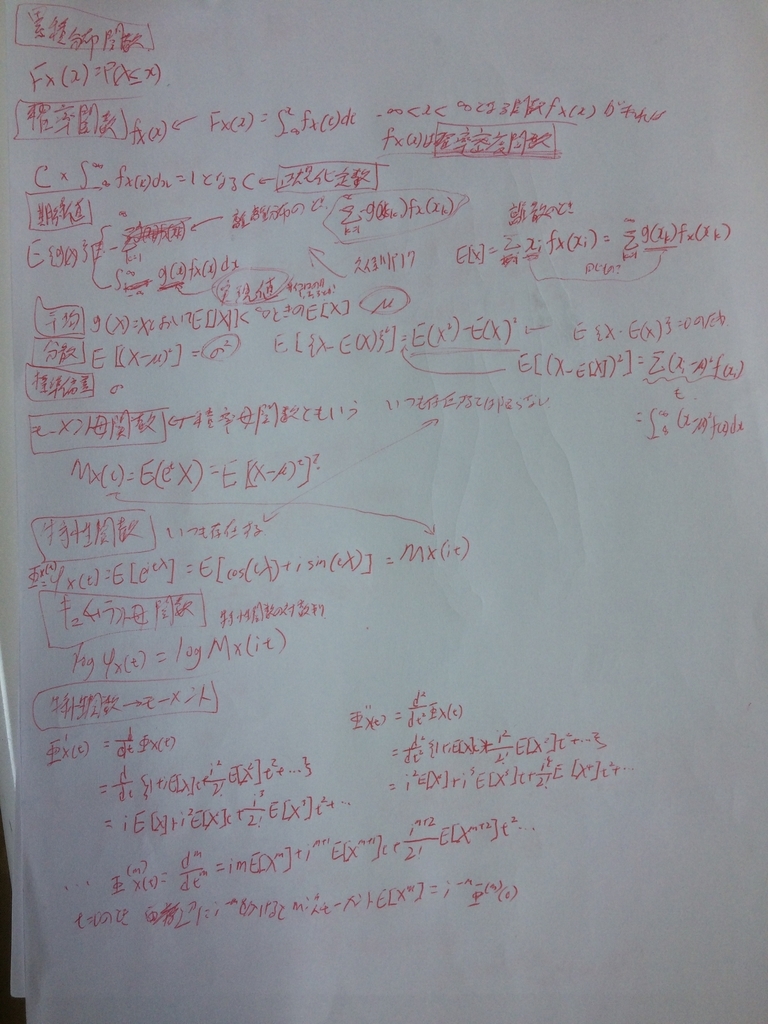 累積分布関数
Fx(x)=P(X≤x)
確率関数 fx(x) ← Fx(x)=∫_{-∞}^{x} fx(t)dt -∞<x<∞となる関数fx(x)が
fx(x)は確率密度関数
C×∫_{-∞}^{∞} fx(x)dx=1となるC←正規化定数
期待値
離散分布のとき Σ_{k=1}^{∞} g(xk)fx(xk)
E{g(x)}
∫_{-∞}^{∞} g(x)fx(x)dx
実現値
離散のとき
E[X]=Σ xi fx(xi)=Σ_{k=1}^{∞} g(xk)fx(xk)
平均 g(X)=XとおいてE[|X|]<∞ときのE[X] μ
分散 E[(X-μ)²]=σ² E[{X-E(X)}²]=E(X²)-E(X)² ← E{X-E(X)}=0のため
E[(X-E[X])²]=Σ(xi-μ)²f(xi)
=∫_{-∞}^{∞}(x-μ)²f(x)dx
標準偏差 σ
モーメント母関数 ←積率母関数ともいう いつも存在するとは限らない
Mx(t)=E(e^t X)=E[(X-μ)²]?
特性関数 いつも存在する
φx(t)=E[e^{itX}]=E[cos(tX)+i sin(tX)]=Mx(it)
キュムラント母関数 特性関数の対数を
log φx(t)=log Mx(it)
特性関数→モーメント
Φ'x(t)=d/dt Φx(t)
=d/dt{1+iE[X]t+i²/2! E[X²]t²+…}
=iE[X]+i²E[X²]t+i³/2! E[X³]t²+…
Φ''x(t)=d²/dt² Φx(t)
=d²/dt²{1+iE[X]t+i²/2! E[X²]t²+…}
=i²E[X²]+i³E[X³]t+i⁴/2! E[X⁴]t²+…
… Φ^(n)x(t)=d^n/dt^n=i^nE[X^n]+i^{n+1}E[X^{n+1}]t+i^{n+2}/2! E[X^{n+2}]t²…
t=0のとき i^{-n}をかけると n次モーメントE[X^n]=i^{-n}Φ^(n)(0)